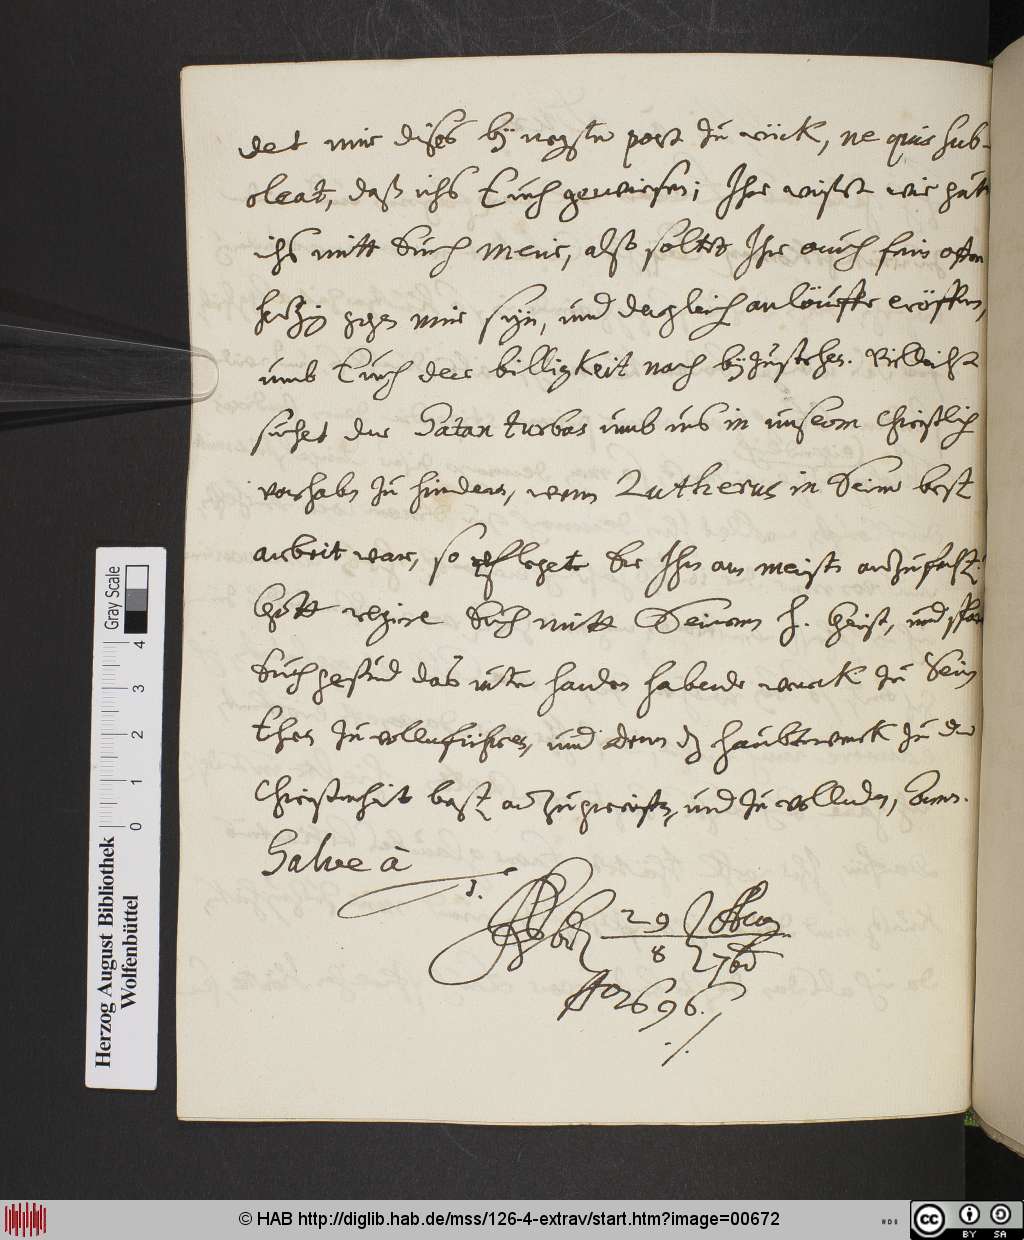 det mir dises bÿ negste post zu rück, ne quis sub-
oleat, daß ichs Euch gewiesen; Ihr wisset wie gut
ichs mitt Euch meine, also soltet Ihr auch fein offen
hertzig gegen mir sÿn, und dergleich anleüffte eröffnen,
umb Euch der billigkeit nach bÿzustehen. Villeicht
suchet der Satan turbas umb uns in unserm Christlich
vorhaben zu hindern, wenn Lutherus in Seiner best
arbeit war, so pflegete Er Ihn am meisten anzufecht
Gott regire Euch mitt Seinem h. Geist, und
Euch gesund das unter handen habende werck zu Sein
Ehren zu vollnführen, und denn dz haubtwerck zu der
Christenheit best anzugreiffen, und zu vollenden, Amen.
Salve à
29
8 7br
Ao 1696.
Herzog August Bibliothek
Wolfenbüttel
0 1 2 3 4
Gray Scale
© HAB http://diglib.hab.de/mss/126-4-extrav/start.htm?image=00672
HAB
cc BY SA